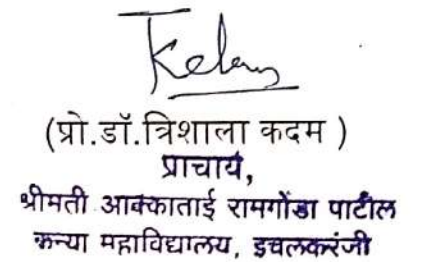 (प्रो.डॉ.त्रिशाला कदम )
प्राचार्य,
श्रीमती आक्काताई रामगोंडा पाटील
कन्या महाविद्यालय, इचलकरंजी